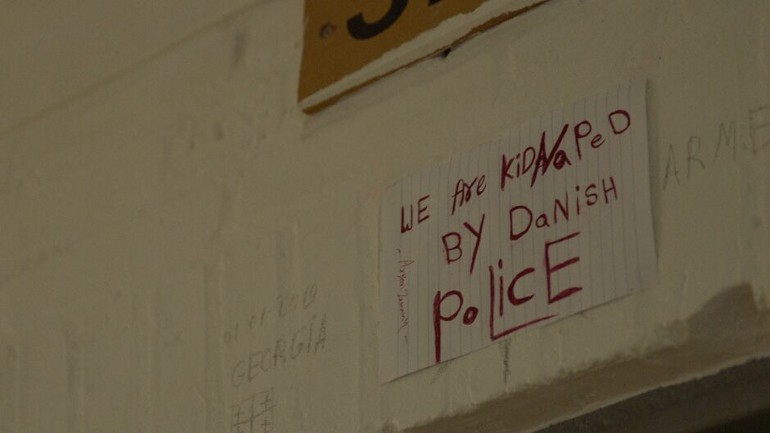 WE Are KiDNaPeD
BY DaNiSH
PoLicE
01.11.2019
GEORGIA
ARME